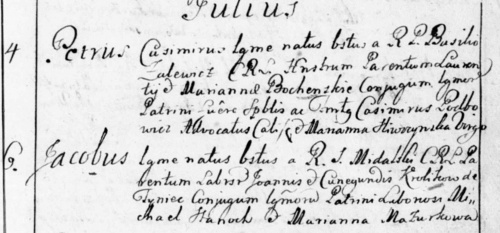 Julius
4 Petrus Casimirus lgme natus bstus a R P Basilio
Zalewicz CRL Hnstrum Parentum Lauren
tij et Mariannæ Bochenskie Conjugum lgmor
Patrini fuêre Spblis ac Casimirus Podbo
wicz Advocatus et Marianna Virgo
6. Jacobus lgme natus bstus a R. J. Midalski CRL Pa
rentum Labrsr Joannis et Cunegundis Krolikow de
Tyniec Conjugum lgmorum Patrini Labonosi Mi
chael Hanoch et Marianna Mazurkowa